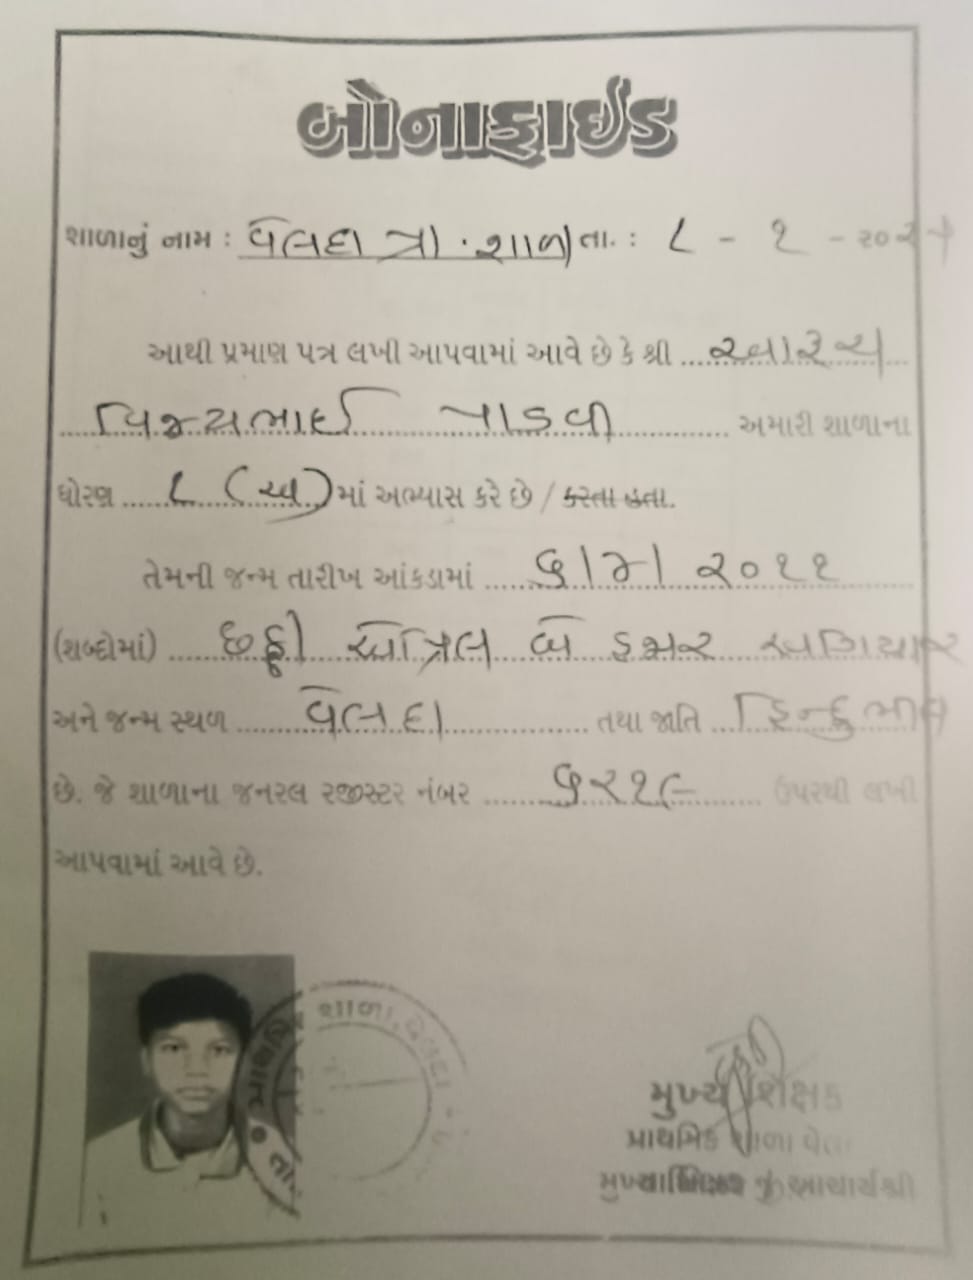 બોનાફાઈડ
શાળાનું નામ : વેલદા પ્રા. શાળા તા. : ૮ - ૧ - ૨૦૨૫
આથી પ્રમાણ પત્ર લખી આપવામાં આવે છે કે શ્રી
વિજયભાઈ પાડવી અમારી શાળાના
ધોરણ ૮ (અ) માં અભ્યાસ કરે છે / કરતા હતા.
તેમની જન્મ તારીખ આંકડામાં ૬/૪/૨૦૧૧
(શબ્દોમાં) છઠ્ઠી એપ્રિલ બે હજાર અગિયાર
અને જન્મ સ્થળ વેલદા તથા જાતિ હિન્દુ ભીલ
છે. જે શાળાના જનરલ રજીસ્ટર નંબર ૫૨૧૯ ઉપરથી લખી
આપવામાં આવે છે.
શાળા, વેલદા
તા.
મુખ્ય શિક્ષક
પ્રાથમિક શાળા વેલદા
આચાર્યશ્રી